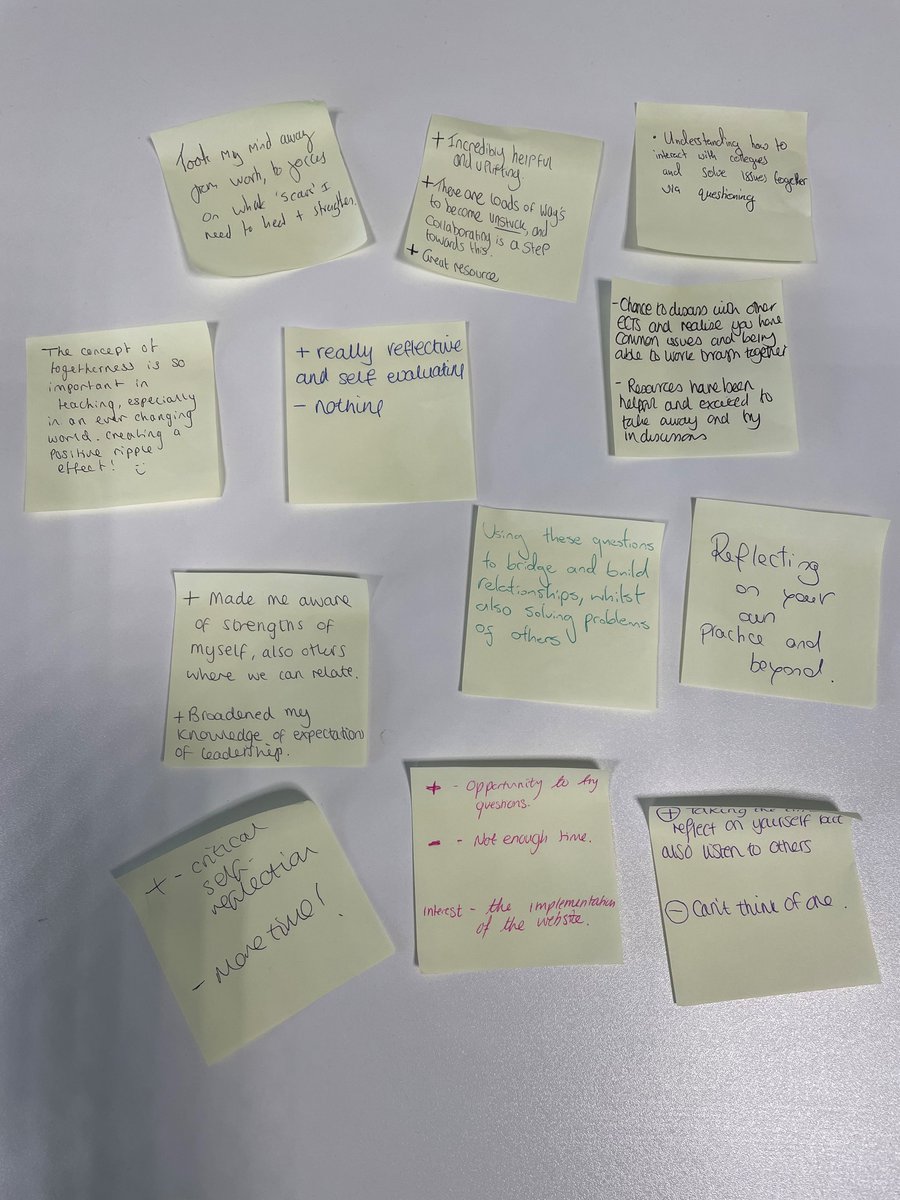 Took my mind away
from work, to focus
on what 'scars' I
need to heal + strengthen.
+ Incredibly helpful
and uplifting.
+ There are loads of way's
to become unstuck, and
collaborating is a step
towards this.
+ Great resource
• Understanding how to
interact with collegues
and solve issues together
via questioning
The concept of
togetherness is so
important in
teaching, especially
in an ever changing
world. Creating a
positive ripple
effect! ☺
+ really reflective
and self evaluating
- nothing
- Chance to discuss with other
ECTS and realise you have
common issues and being
able to work through together
- Resources have been
helpful and excited to
take away and try
in discussions
Using these questions
to bridge and build
relationships, whilst
also solving problems
of others
Reflecting
on your
own
practice and
beyond.
+ Made me aware
of strengths of
myself, also others
where we can relate.
+ Broadened my
knowledge of expectation
of leadership.
+ - critical
self-
reflection
- More time!
+ - Opportunity to try
questions.
- - Not enough time.
interest - the implementation
of the website.
+ Taking the
reflect on yourself but
also listen to others
- Can't think of one.